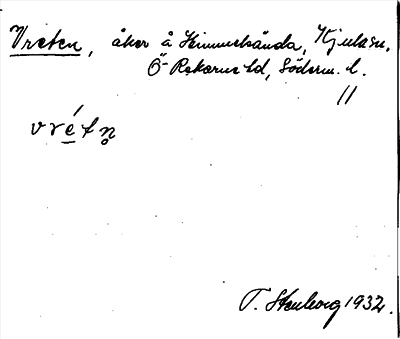 Vreten, åker å Himmelsända, Kjulasn.
Ö-Rekarne hd, Söderm. l.
11
vrétn̥
T. Stenborg 1932.